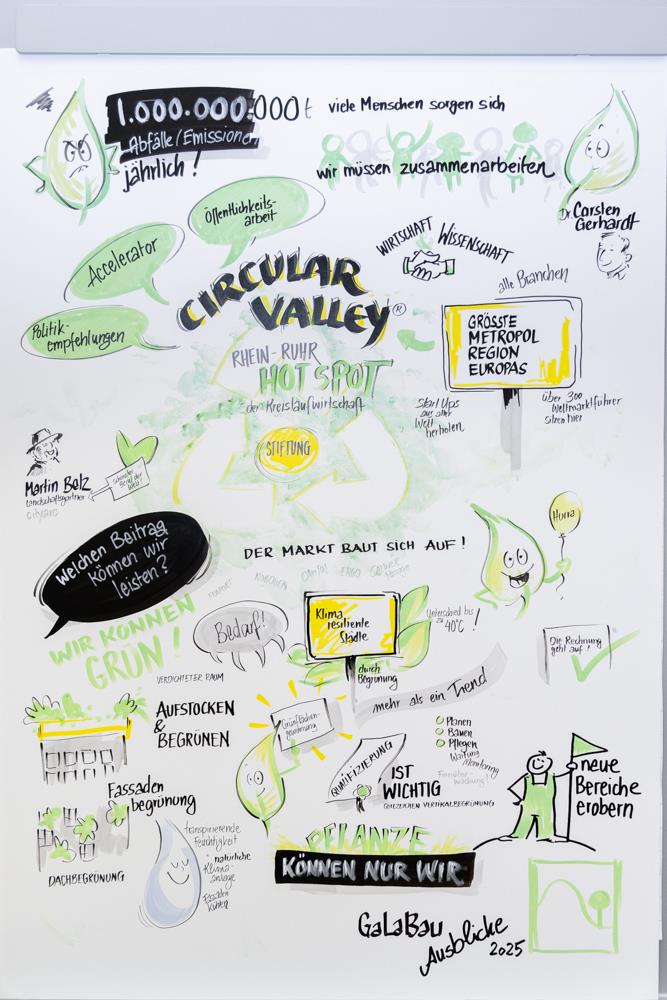 1.000.000.000t
Abfälle/Emissionen
jährlich!
viele Menschen sorgen sich
wir müssen zusammenarbeiten
Dr. Carsten
Gerhardt
Öffentlichkeits-
arbeit
Accelerator
Politik-
empfehlungen
CIRCULAR
VALLEY®
WIRTSCHAFT
&
WISSENSCHAFT
alle Branchen
GRÖSSTE
METROPOL
REGION
EUROPAS
RHEIN-RUHR
HOT SPOT
der Kreislaufwirtschaft
STIFTUNG
Start Ups
aus aller
Welt
herholen
über 300
Weltmarktführer
sitzen hier
schönster
Beruf der
Welt!
Martin Belz
Landschaftsgärtner
Welchen Beitrag
können wir
leisten?
DER MARKT BAUT SICH AUF!
Hurra
WIR KÖNNEN
GRÜN!
Bedarf!
VERDICHTETER RAUM
Klima
resiliente
Städte
durch
Begrünung
Unterschied bis
zu 40°C!
Die Rechnung
geht auf!
mehr als ein Trend
AUFSTOCKEN
&
BEGRÜNEN
Grünflächen-
gewinnung
Planen
Bauen
Pflegen
Wartung
Monitoring
QUALIFIZIERUNG
IST
WICHTIG
VERTIKALBEGRÜNUNG
neue
Bereiche
erobern
Fassaden
begrünung
DACHBEGRÜNUNG
transpirierende
Feuchtigkeit
natürliche
Klima-
anlage
Fassaden
kühlen
PFLANZE
KÖNNEN NUR WIR
GaLaBau
Ausblicke
2025